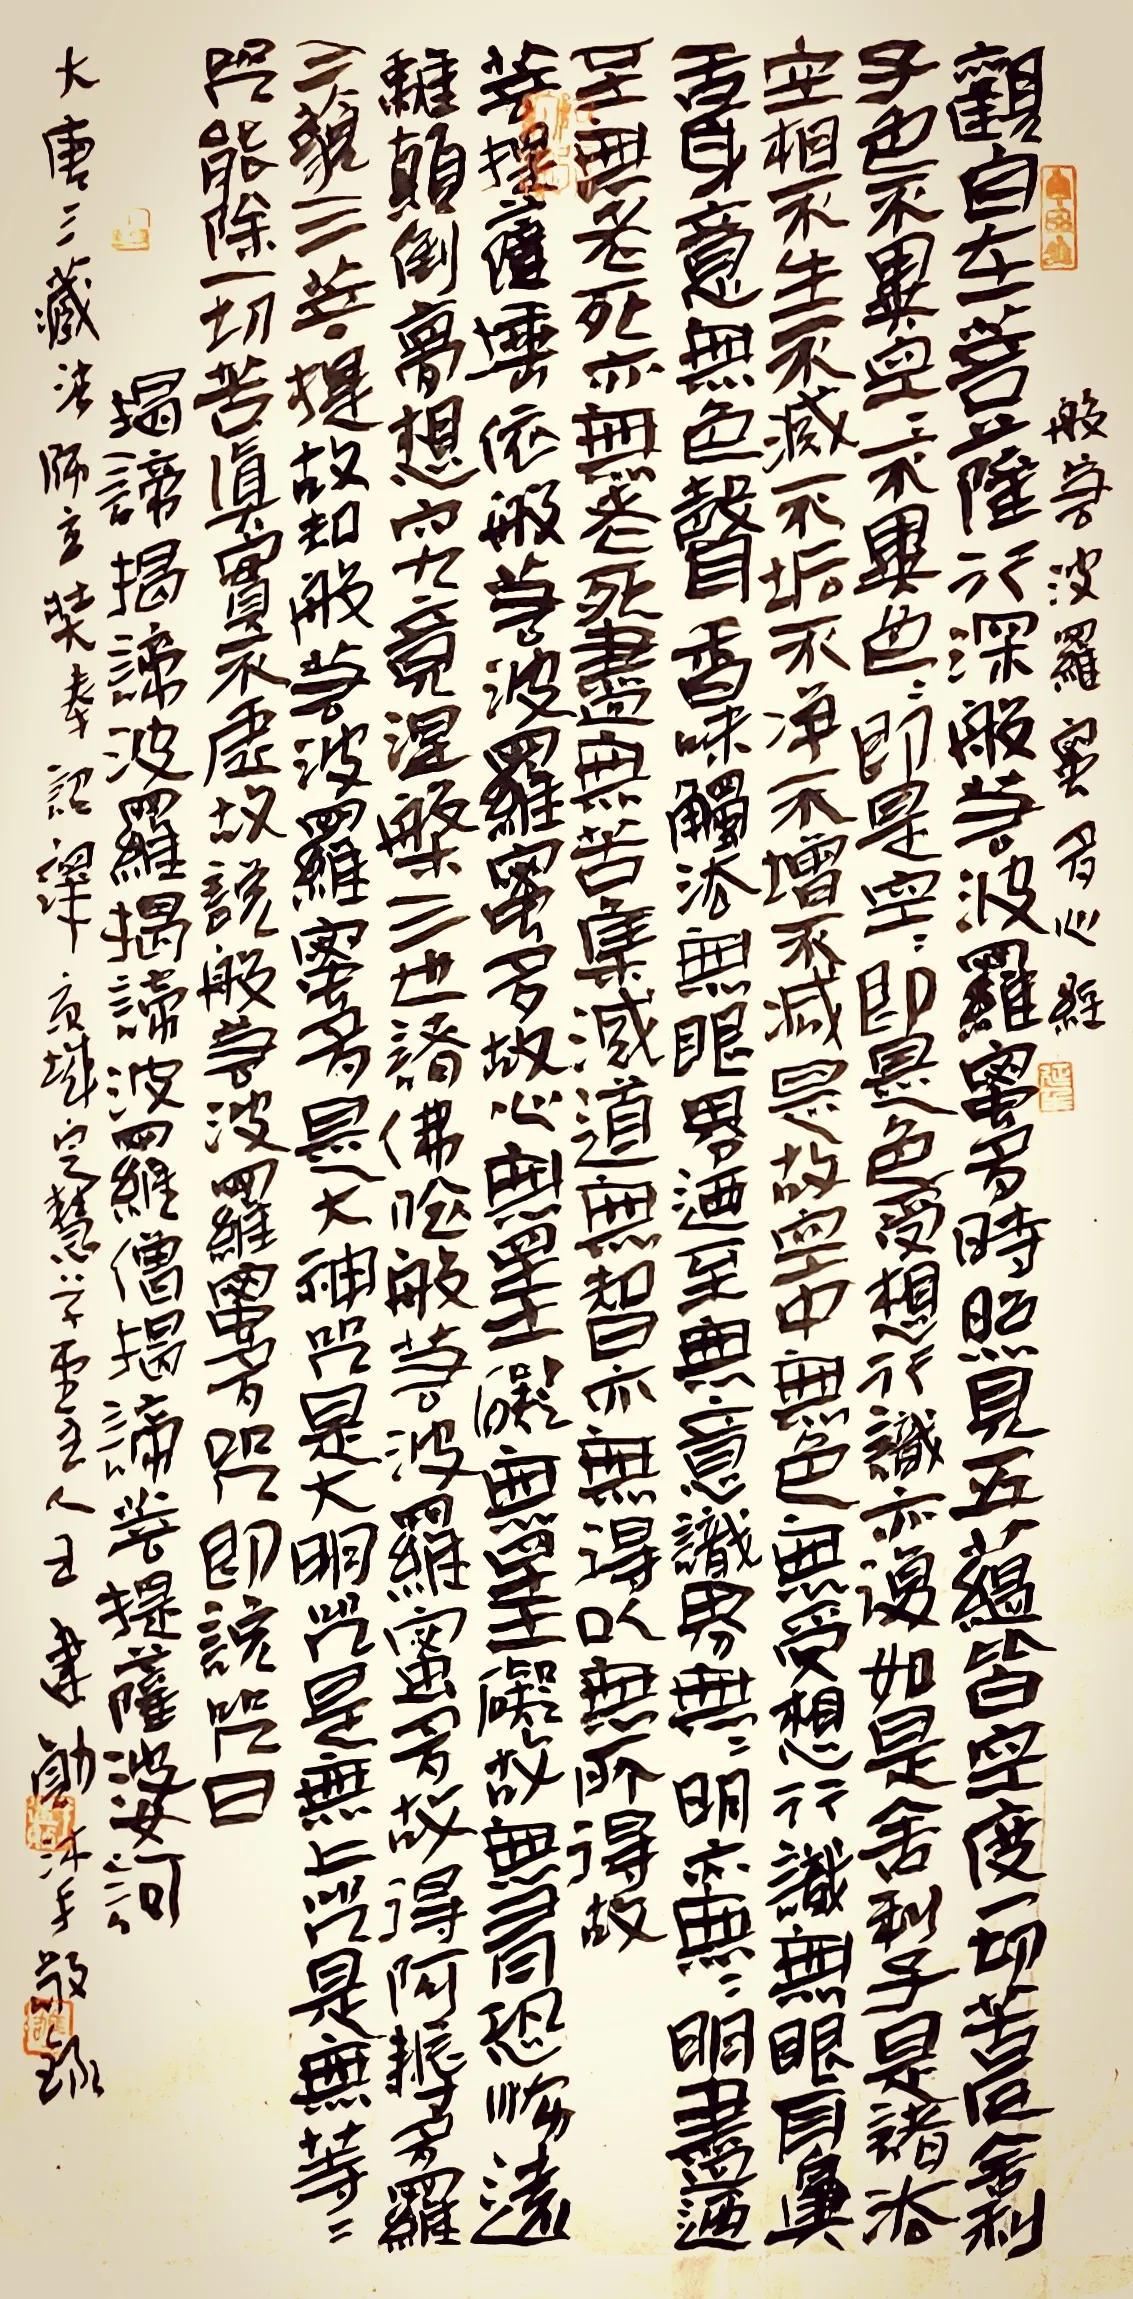 般若波羅蜜多心經
觀自在菩薩行深般若波羅蜜多時照見五蘊皆空度一切苦厄舍利
子色不異空〻不異色〻即是空〻即是色受想行識亦復如是舍利子是諸法
空相不生不滅不垢不淨不增不減是故空中無色無受想行識無眼耳鼻
舌身意無色聲香味觸法無眼界迺至無意識界無〻明亦無〻明盡迺
至無老死亦無老死盡無苦集滅道無智亦無得以無所得故
菩提薩埵依般若波羅蜜多故心無罣礙無罣礙故無有恐怖遠
離顛倒夢想究竟涅槃三世諸佛依般若波羅蜜多故得阿耨多羅
三藐三菩提故知般若波羅蜜多是大神咒是大明咒是無上咒是無等〻
咒能除一切苦真實不虛故說般若波羅蜜多咒即說咒曰
揭諦揭諦波羅揭諦波羅僧揭諦菩提薩婆訶
大唐三藏法師玄奘奉詔譯 京城定慧 人 書 沐手敬錄